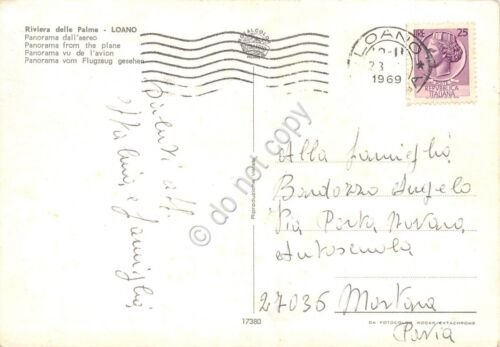 Riviera delle Palme - LOANO
Panorama dall'aereo
Panorama from the plane
Panorama vu de l'avion
Panorama vom Flugzeug gesehen
LOANO
23
1969
LIRE 25
REPUBBLICA
ITALIANA
Saluti aff.
e famiglia
do not copy
Alla famiglia
Bardozzo Angelo
Via Porta Novara
Autoscuola
27036 Mortara
Pavia
17380
DA FOTOCOLOR KODAK EKTACHROME